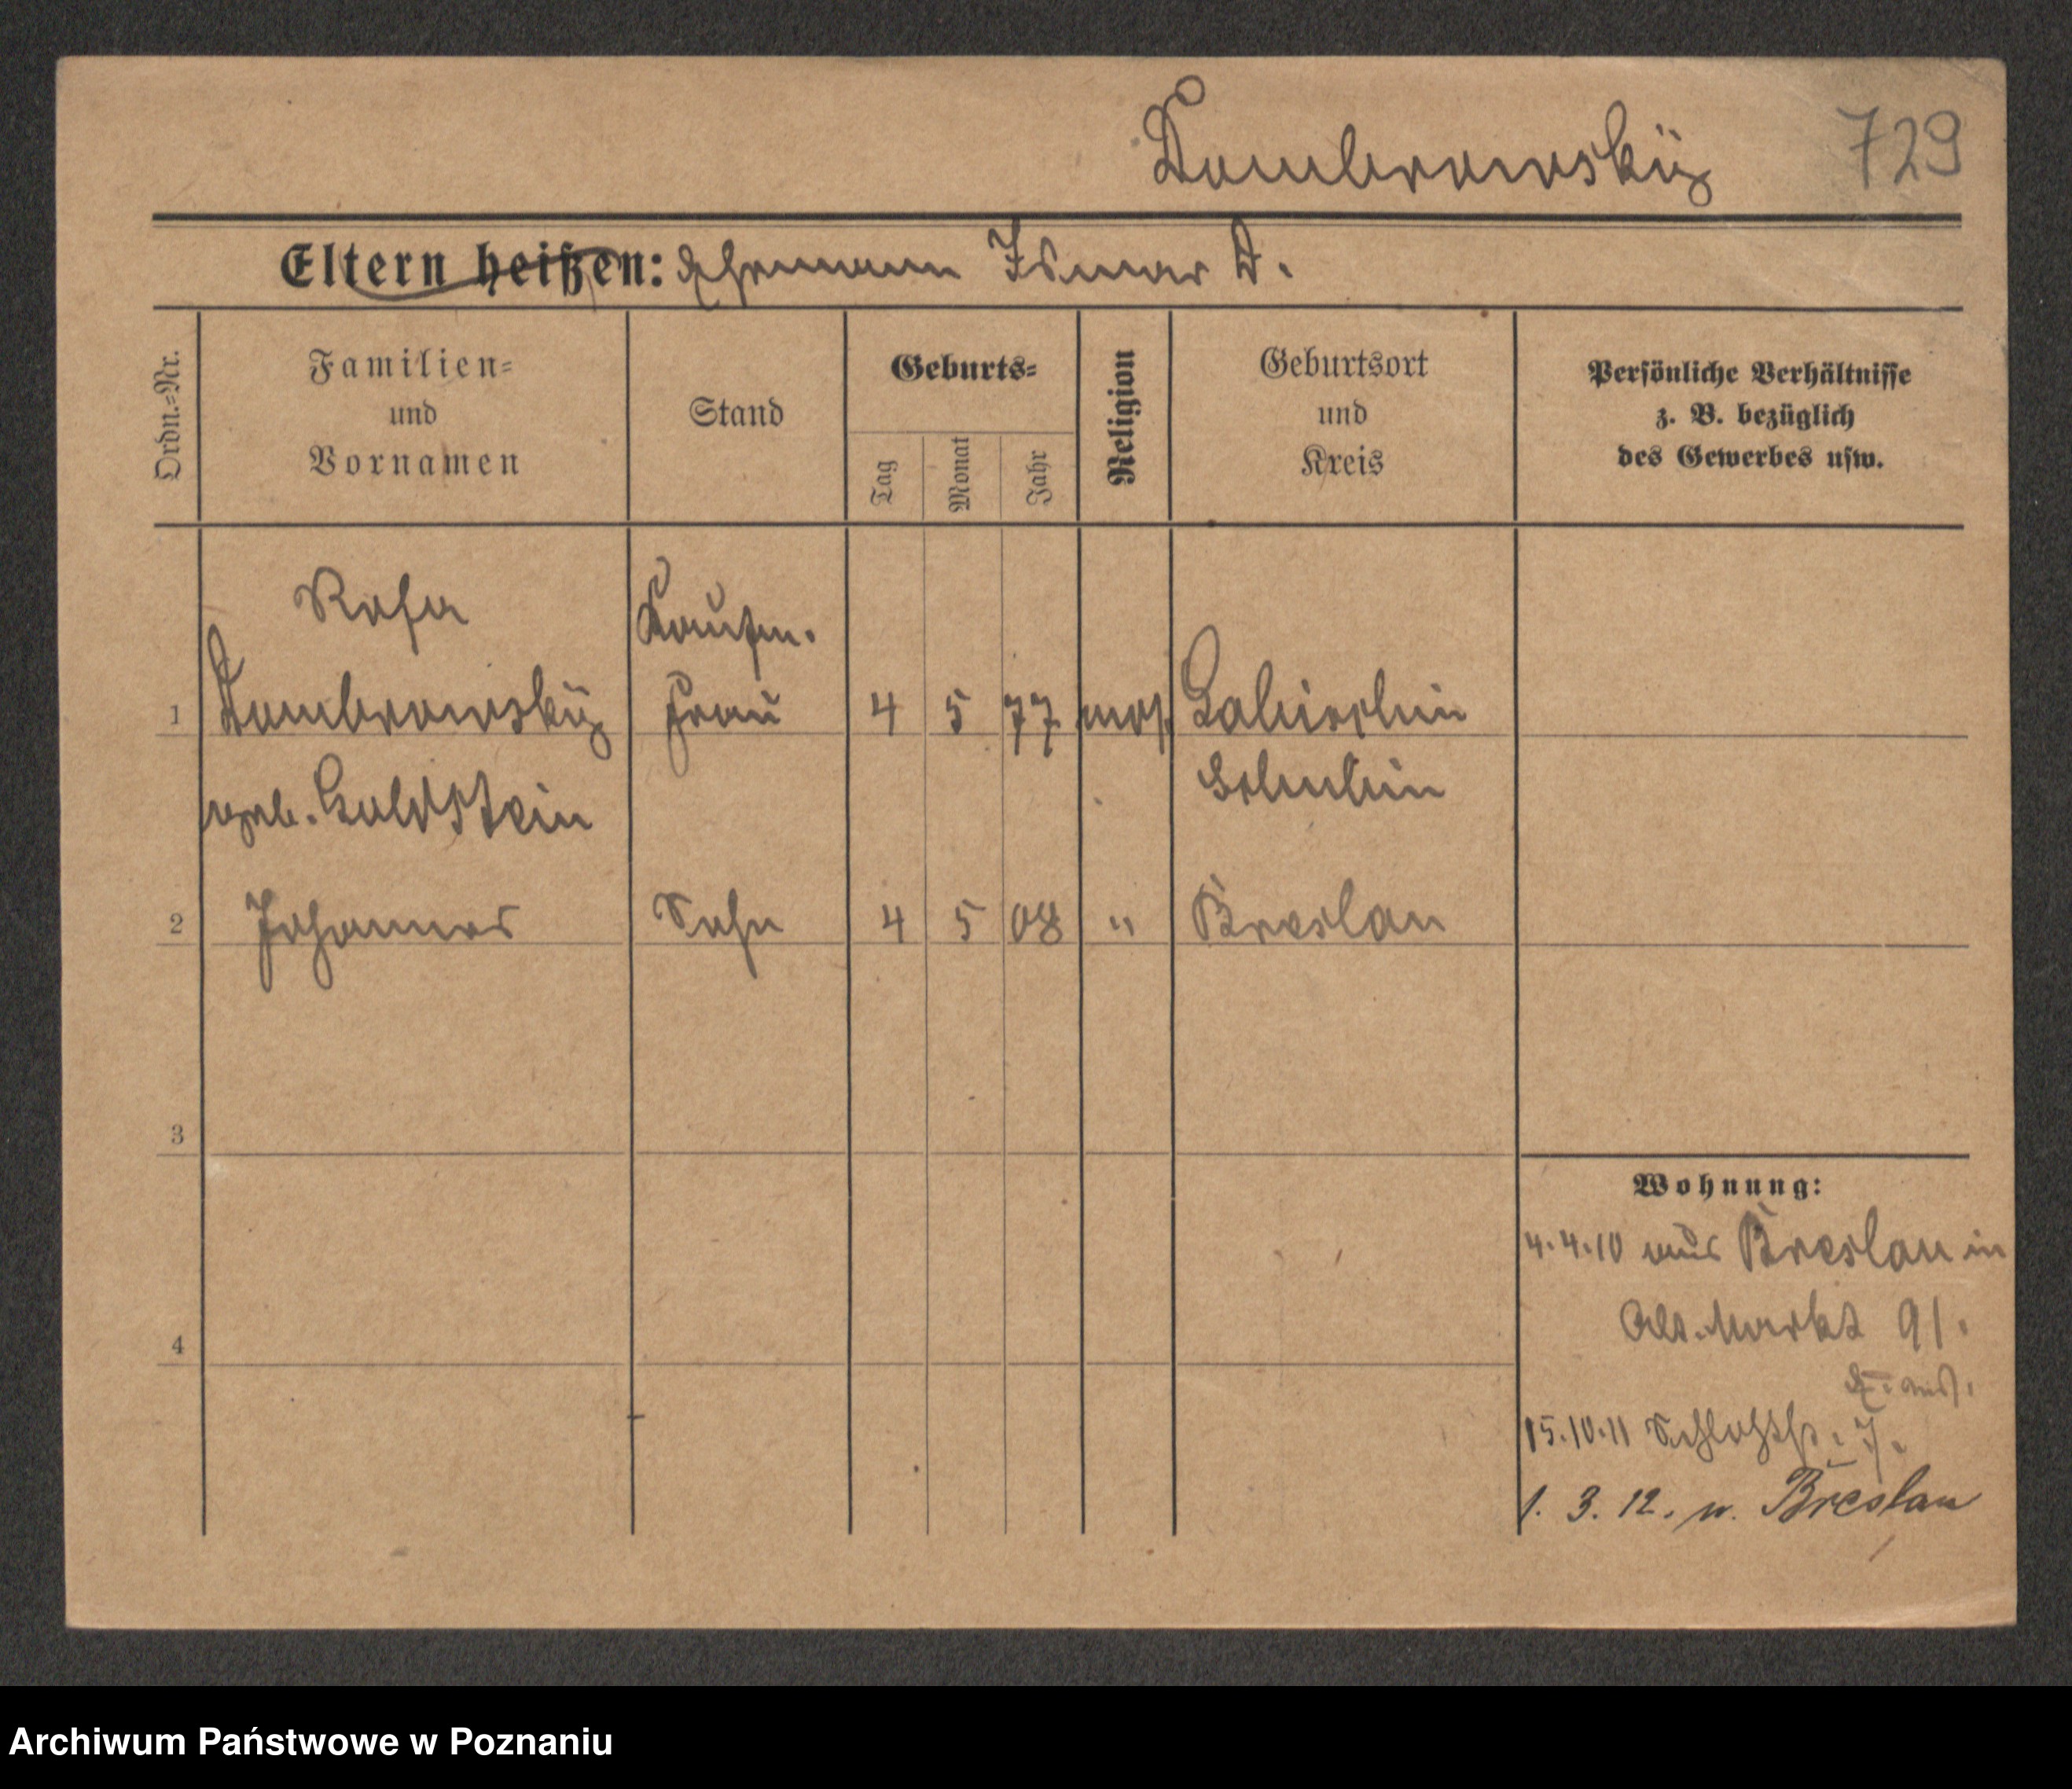 Dombrowsky 729
Eltern heißen: Ehemann Ismar D.
Ordn.-Nr.
Familien-
und
Vornamen
Stand
Geburts-
Tag
Monat
Jahr
Religion
Geburtsort
und
Kreis
Persönliche Verhältnisse
z. B. bezüglich
des Gewerbes usw.
Rosa Kaufm.
1 Dombrowsky Frau 4 5 77 mos. Labischin
geb. Goldstein Schubin
2 Johannes Sohn 4 5 08 " Breslau
3
4
Wohnung:
4.4.10 aus Breslau in
Alt. Markt 91.
15.10.11 Schloßstr. 7.
1. 3. 12. n. Breslau
Archiwum Państwowe w Poznaniu